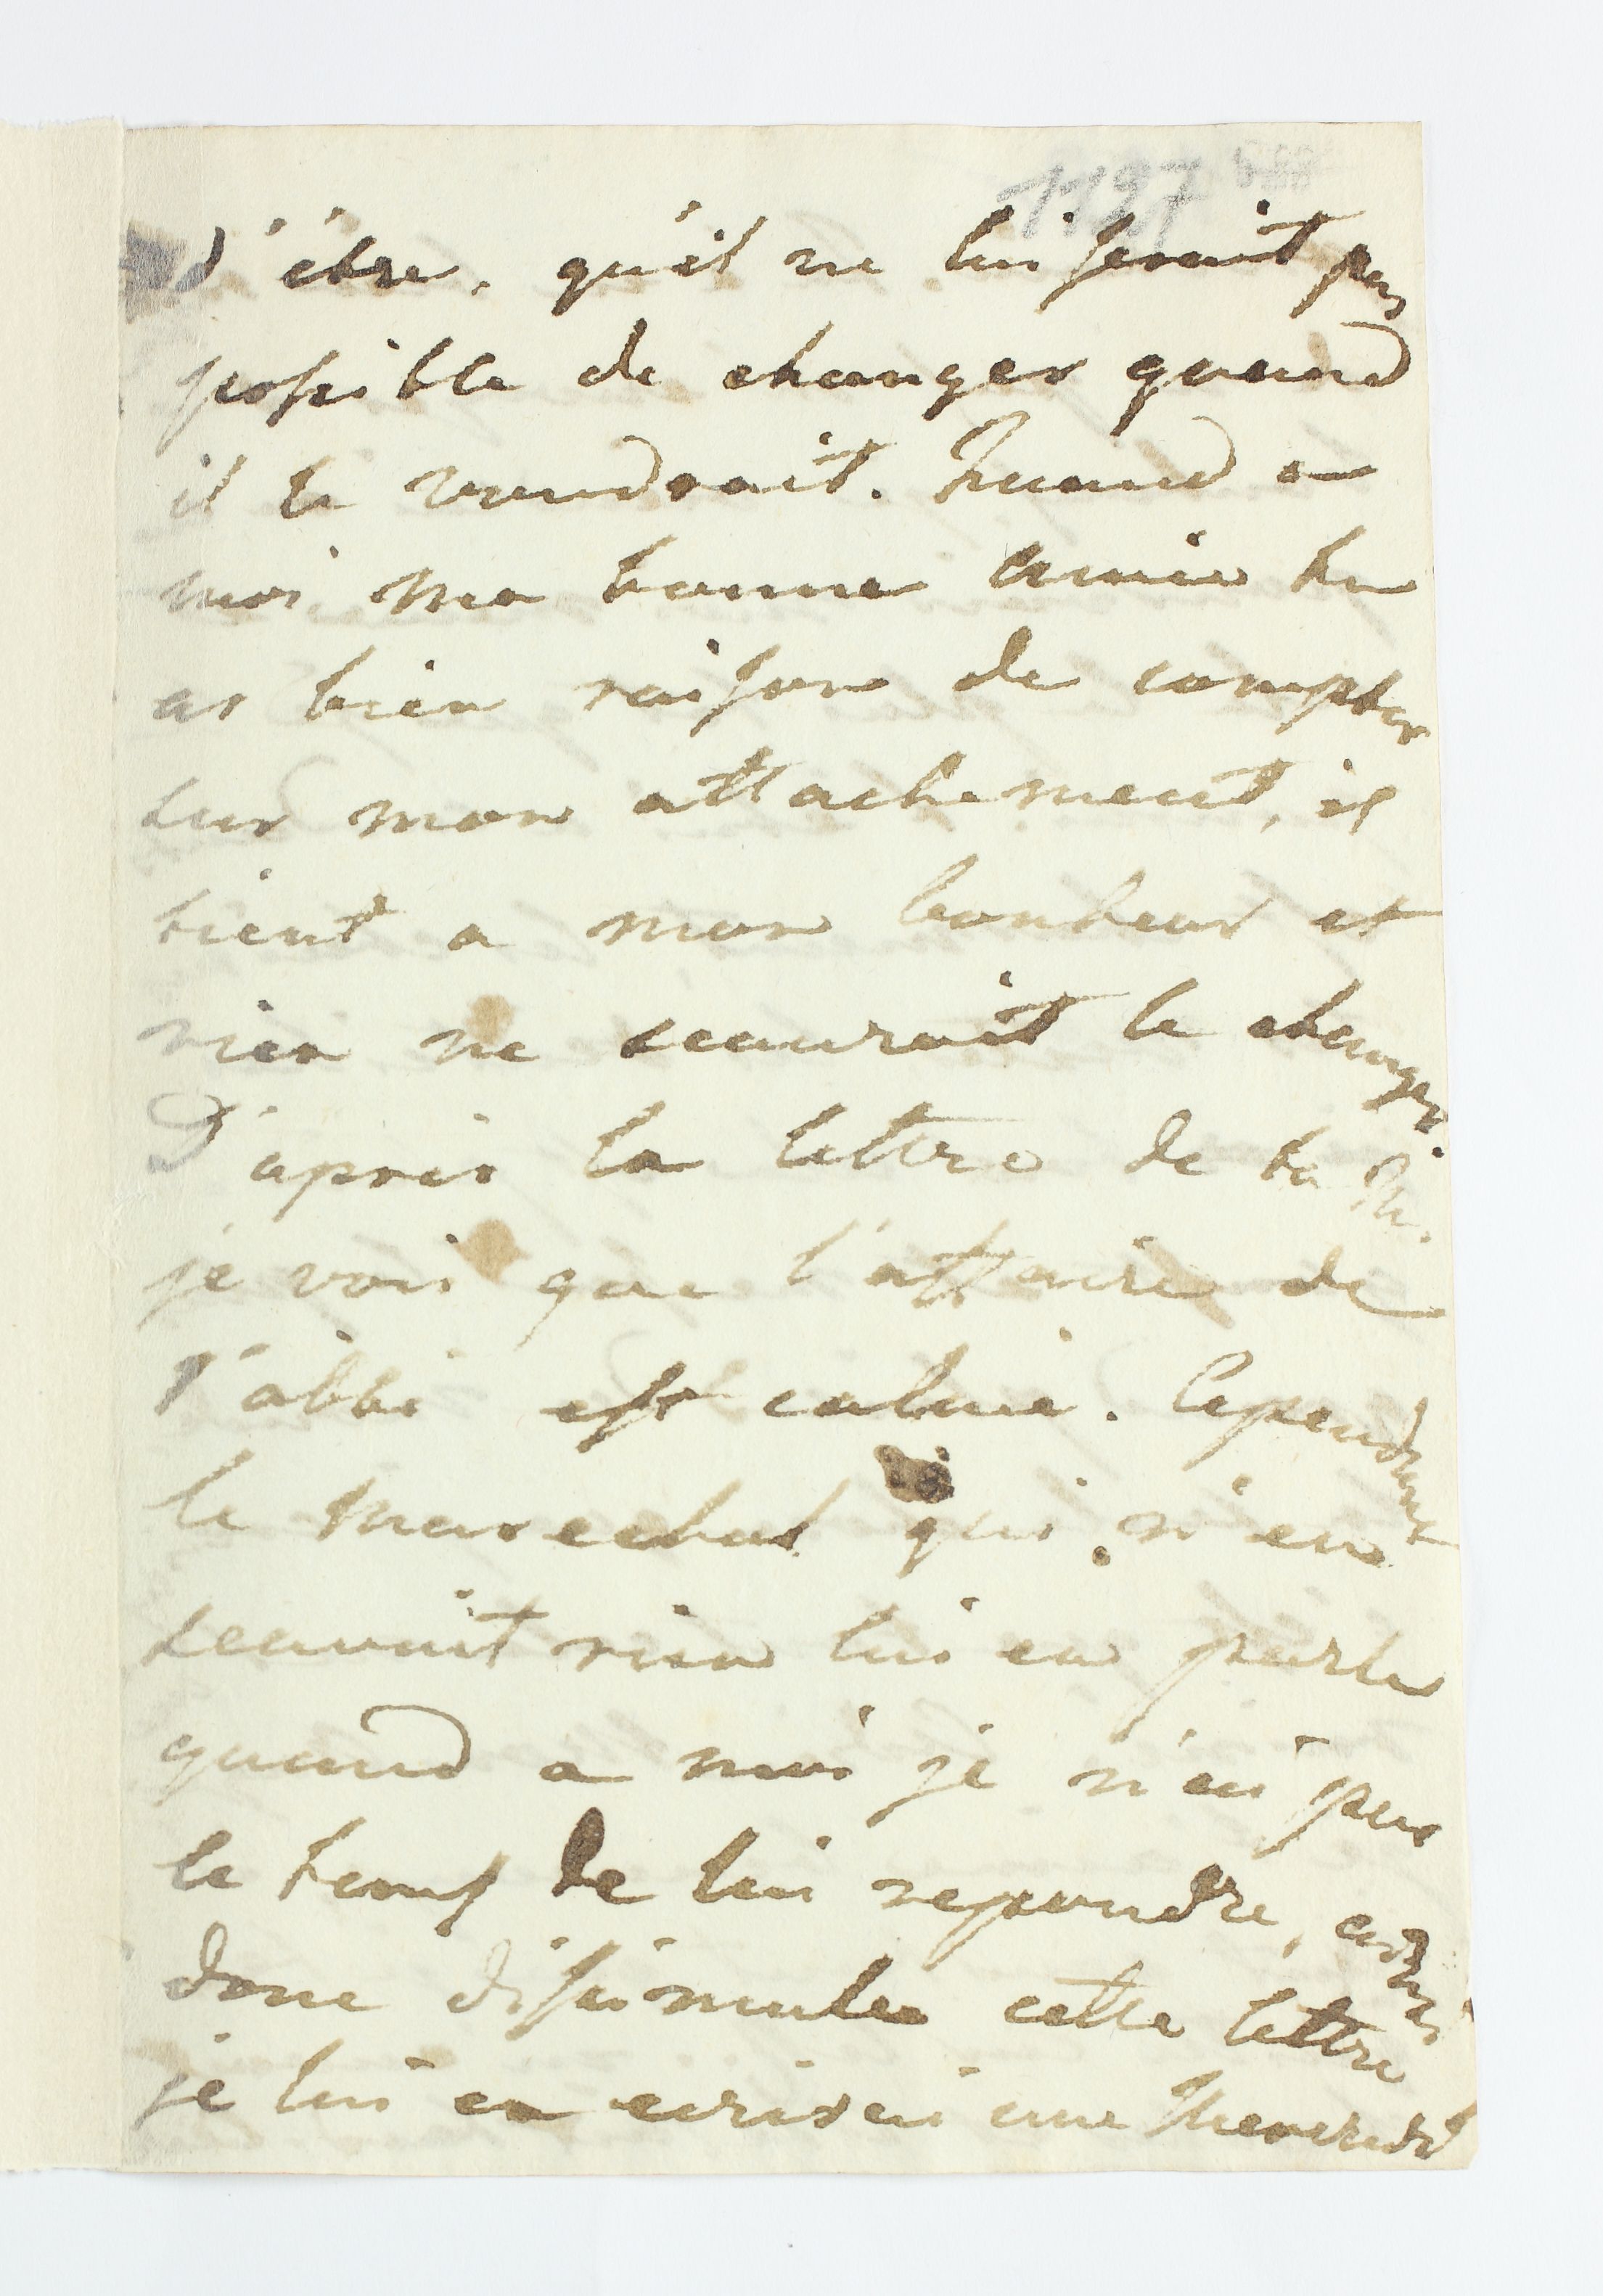 1197
d'être, qu'il ne lui seroit pas
possible de changer quand
il le voudroit. Quand a
moi ma bonne amie tu
as bien raison de compter
sur mon attachement, il
tient a mon bonheur et
rien ne scauroit le changer.
D'après la lettre de ta M.
je vois que l'affaire de
l'abbé est calmé. Cependant
le marechal qui n'en
scavoit rien lui en parle
quand a moi je n'ai pas
le temps de lui repondre,
donc dissimule cette lettre
je lui en ecrirai une Mercredi